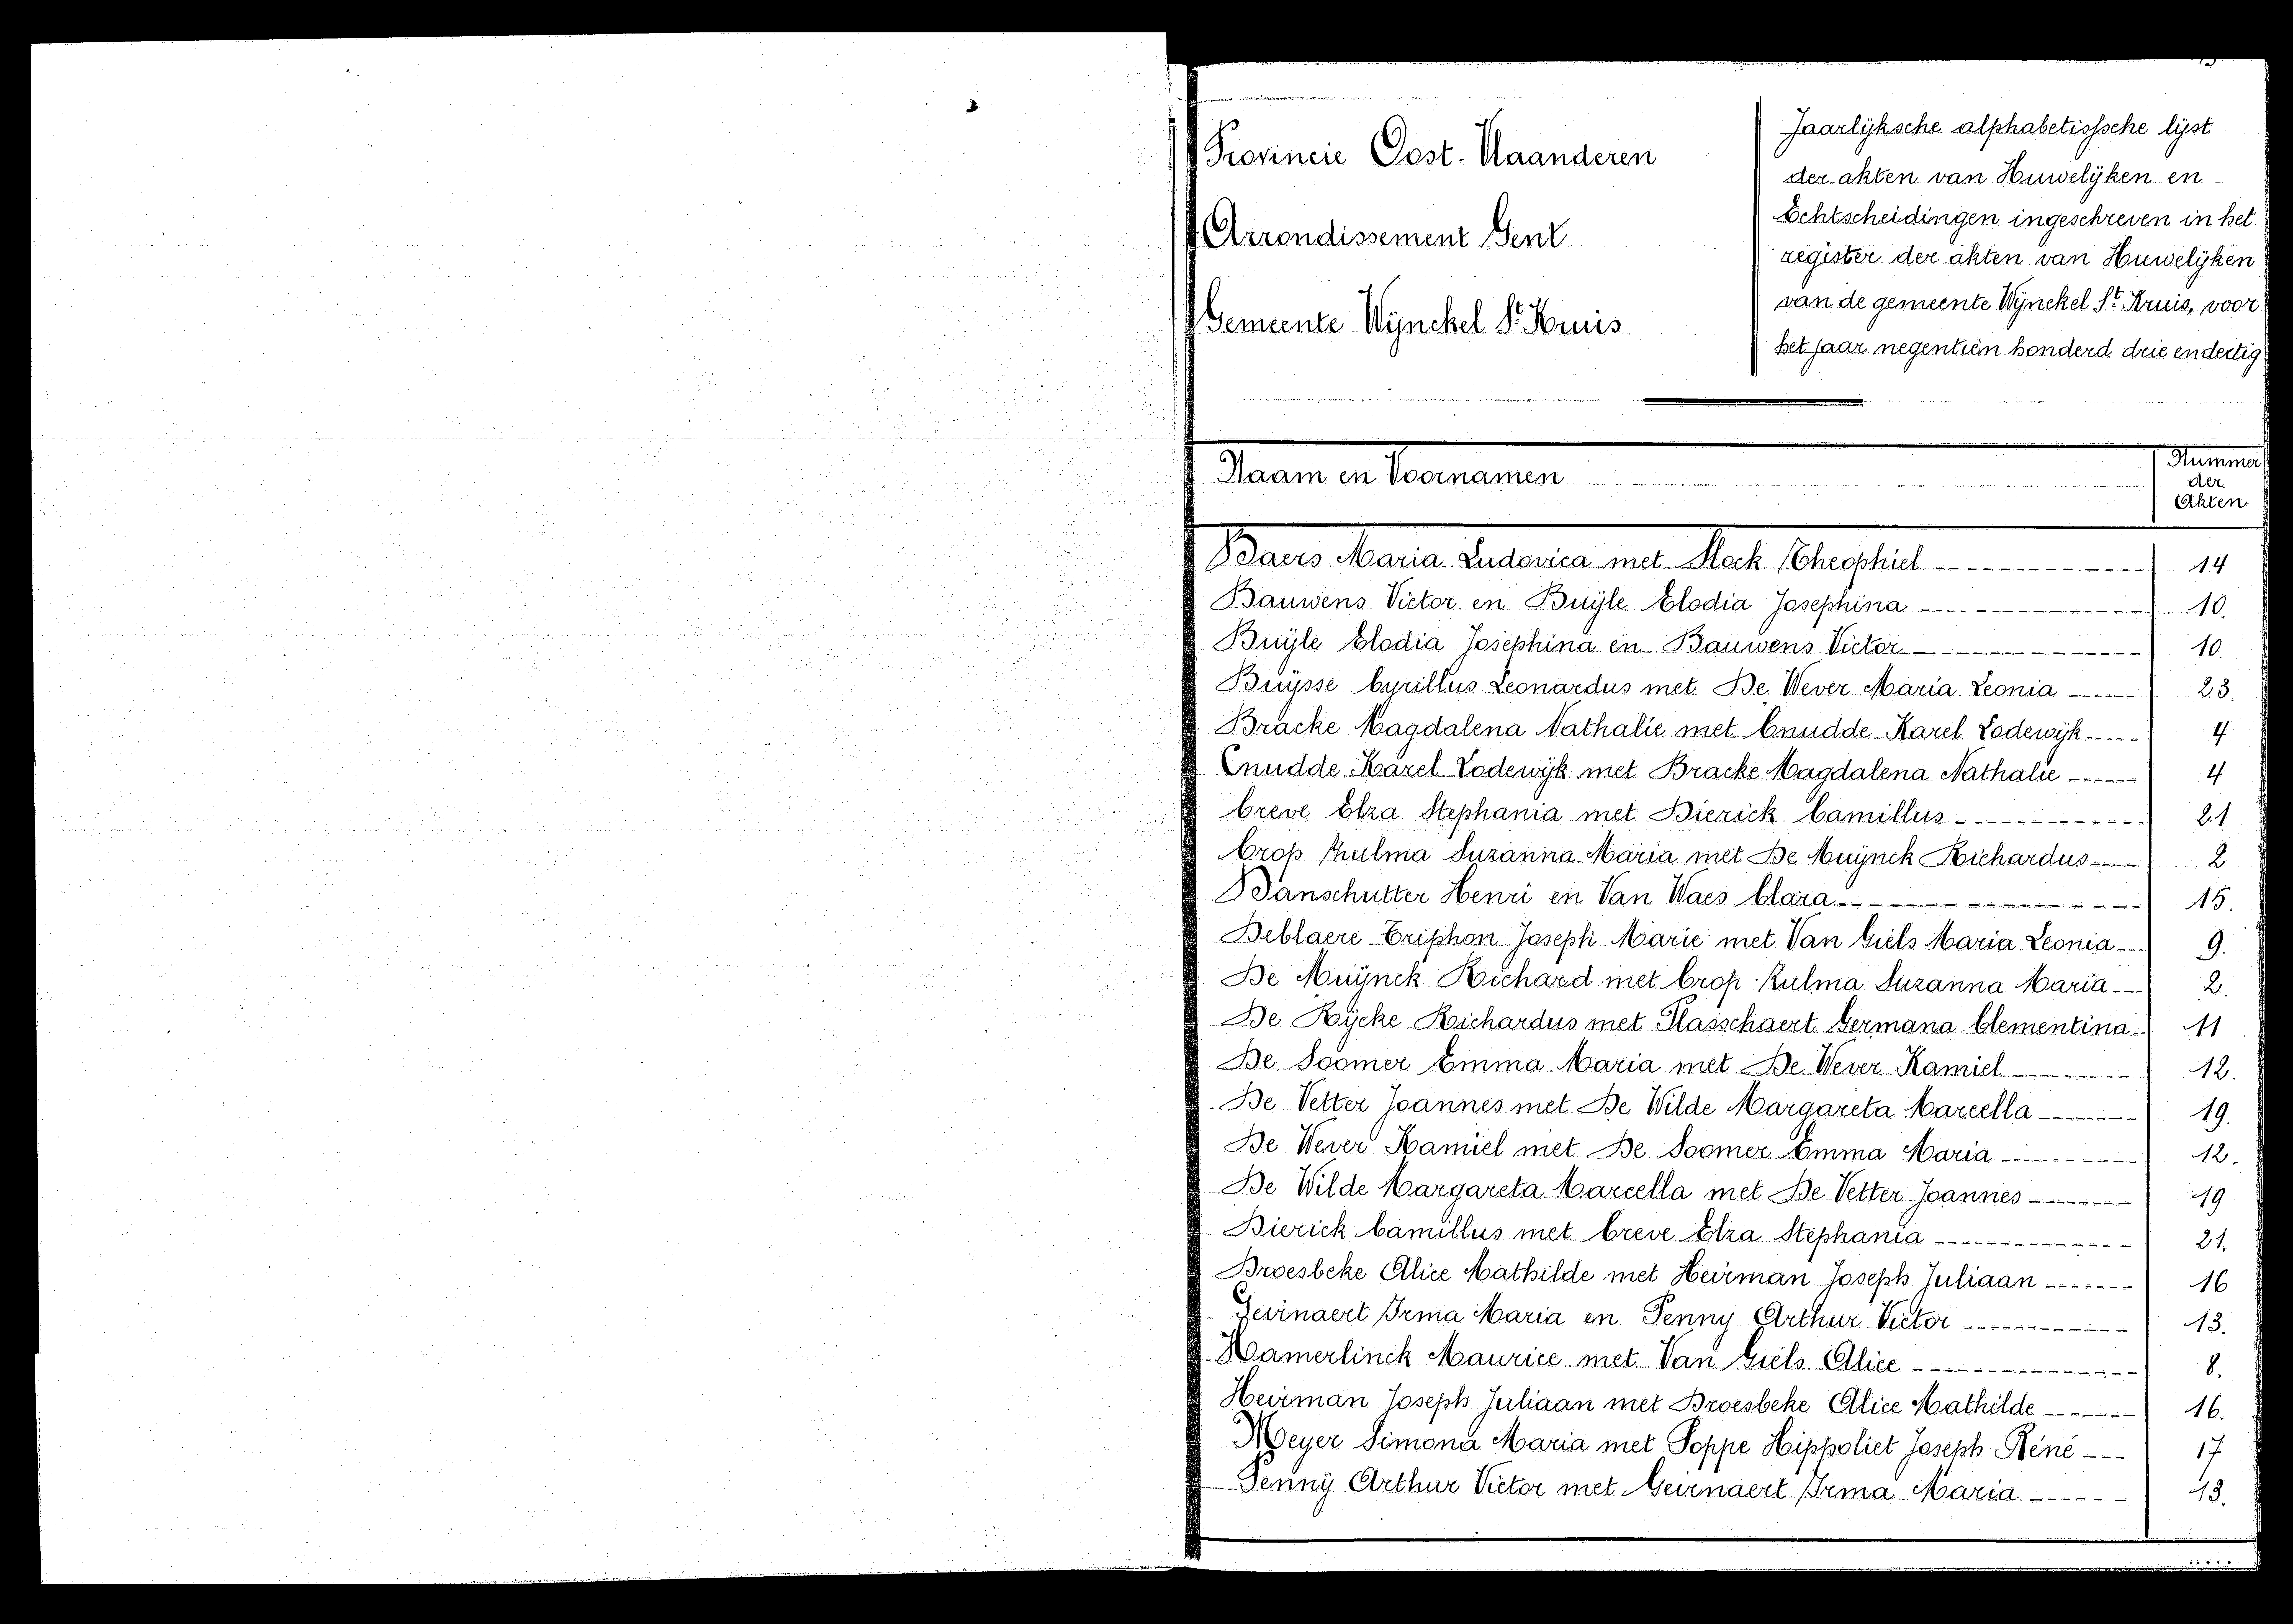 Provincie Oost-Vlaanderen
Arrondissement Gent
Gemeente Wijnckel St. Kruis.
Jaarlijksche alphabetissche lijst
der akten van Huwelijken en
Echtscheidingen ingeschreven in het
register der akten van Huwelijken
van de gemeente Wijnckel St. Kruis, voor
het jaar negentien honderd drie en dertig
Naam en Voornamen
Nummer
der
Akten
Baers Maria Ludovica met Stock Theophiel 14
Bauwens Victor en Buijle Elodia Josephina 10.
Buijle Elodia Josephina en Bauwens Victor 10.
Buijsse Cyrillus Leonardus met De Wever Maria Leonia 23.
Bracke Magdalena Nathalie met Cnudde Karel Lodewijk 4
Cnudde Karel Lodewijk met Bracke Magdalena Nathalie 4
Creve Elza Stephania met Dierick Camillus 21
Crop Zulma Suzanna Maria met De Muijnck Richardus 2
Danschutter Henri en Van Waes Clara 15.
Deblaere Triphon Joseph Marie met Van Giels Maria Leonia 9.
De Muijnck Richard met Crop Zulma Suzanna Maria 2.
De Rijcke Richardus met Plasschaert Germana Clementina 11
De Soomer Emma Maria met De Wever Kamiel 12.
De Vetter Joannes met De Wilde Margareta Marcella 19.
De Wever Kamiel met De Soomer Emma Maria 12.
De Wilde Margareta Marcella met De Vetter Joannes 19
Dierick Camillus met Creve Elza Stephania 21.
Droesbeke Alice Mathilde met Heirman Joseph Juliaan 16
Geirnaert Irma Maria en Penny Arthur Victor 13.
Hamerlinck Maurice met Van Giels Alice 8.
Heirman Joseph Juliaan met Droesbeke Alice Mathilde 16.
Meyer Simona Maria met Poppe Hippoliet Joseph René 17
Penny Arthur Victor met Geirnaert Irma Maria 13.